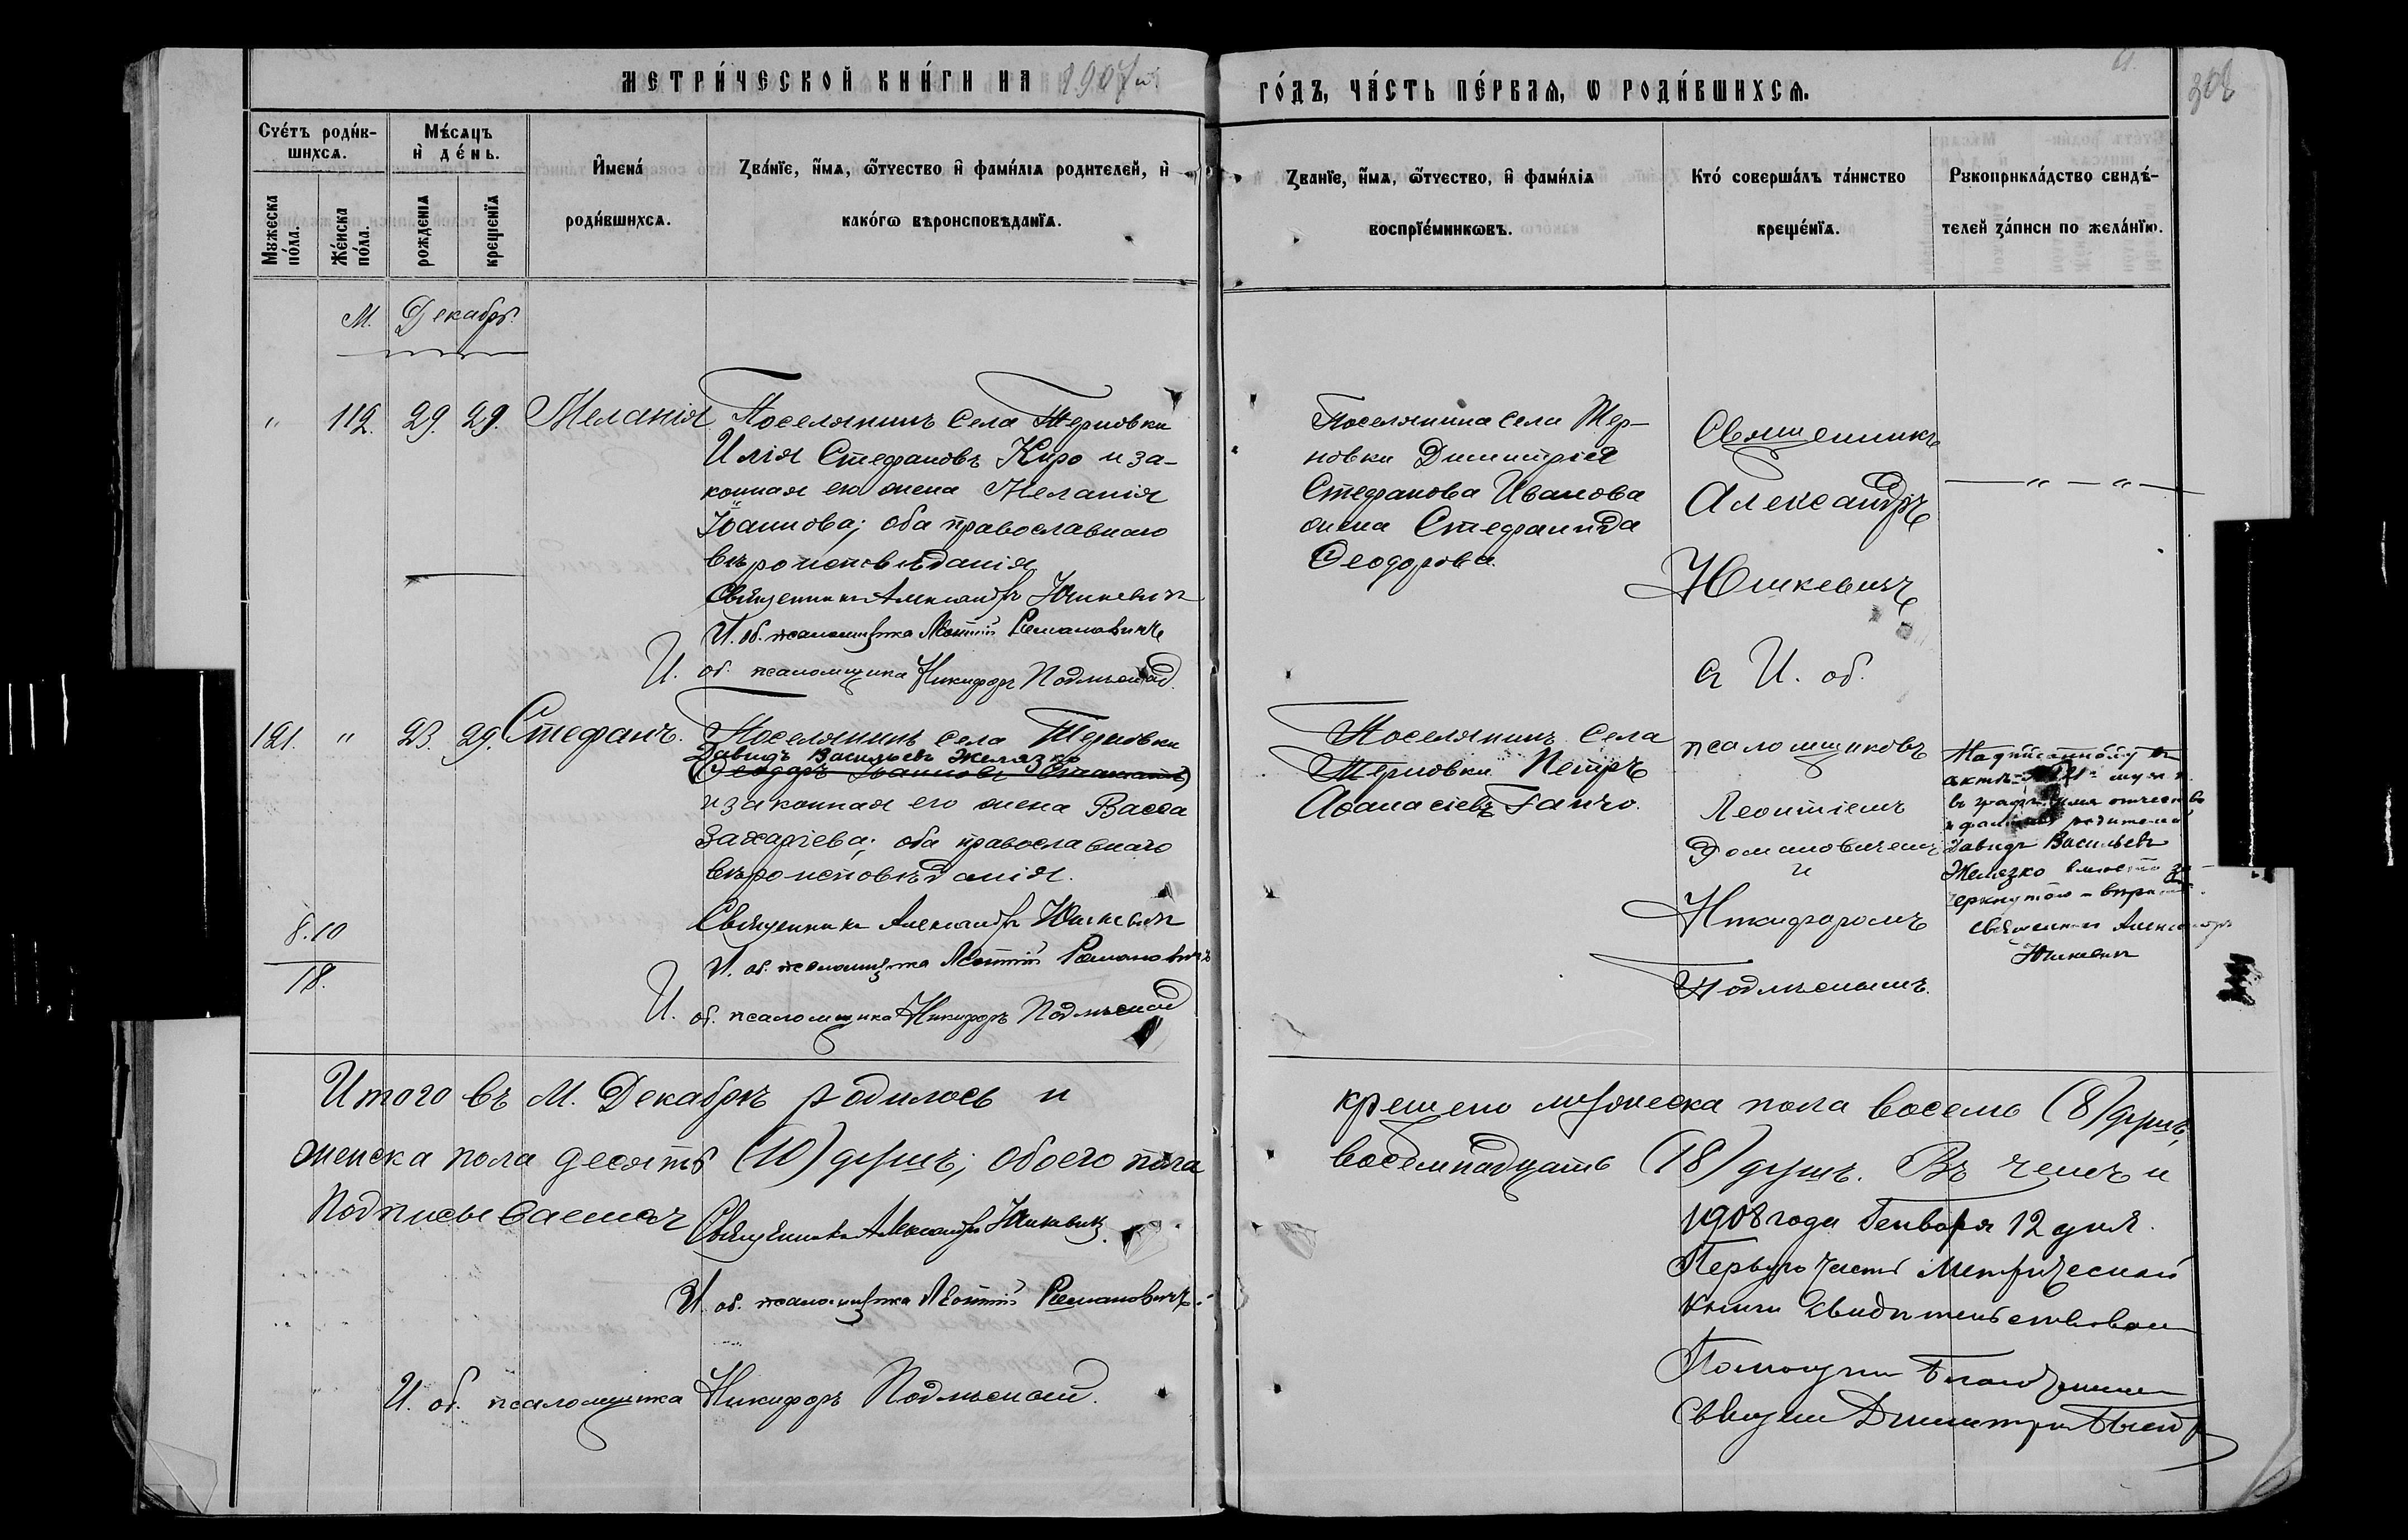 МЕТРИ́ЧЕСКОЙ КНИ́ГИ НА 1907й
ГО́ДЪ, ЧА́СТЬ ПЕ́РВАѦ, Ѡ РОДИ́ВШИХСѦ.
308
Счє́тъ роди́вшихсѧ.
Мѣ́сѧцъ и҆ дє́нь.
Мꙋжеска по́ла.
Же́нска по́ла.
рожденїѧ
крещенїѧ
И҆мена́ роди́вшихсѧ.
Ꙁва́нїе, и҆́мѧ, ѻ҆́тчество и҆ фами́лїѧ родителей, и҆
како́гѡ вѣроисповѣданїѧ.
Ꙁванїе, и҆́мѧ, ѻ҆́тчество, и҆ фами́лїѧ
воспрїе́мникѡвъ.
Кто́ соверша́лъ та́инство
креще́нїѧ.
Рꙋкоприкла́дство свидѣ́-
телей ꙁа́писи по жела́нїю.
М. Декабрь.
" 112. 29. 29. Меланія
Поселянинъ села Терновки
Илія Стефановъ Киро и за-
конная его жена Меланія
Іоаннова; оба православнаго
вѣроисповѣданія
Священникъ Александръ Юшкевичъ
И. об. псаломщика Леонтій Романовичъ
И. об. псаломщика Никифоръ Подлѣсный
Поселянина села Тер-
новки Димитрія
Стефанова Иванова
жена Стефанида
Ѳеодорова.
Священникъ
Александръ
Юшкевичъ
съ И. об.
псаломщиковъ
Леонтіемъ
Романовичемъ
и
Никифоромъ
Подлѣснымъ.
— " — " —
121. " 23. 29. Стефанъ.
Поселянинъ села Терновки
Давидъ Васильевъ Желязко
(Ѳеодоръ Іоанновъ
и законная его жена Васса
Захаріева; оба православнаго
вѣроисповѣданія.
Священникъ Александръ Юшкевичъ
И. об. псаломщика Леонтій Романовичъ
И. об. псаломщика Никифоръ Подлѣсный
8. 10
18.
Поселянинъ села
Терновки Петръ
Аѳанасіевъ Ганчо.
Надписанному въ
актѣ 121
въ графѣ имя отчество
и фамилія родителей
Давидъ Васильевъ
Желязко вмѣсто за-
черкнутаго — вѣрить.
Священникъ Александръ
Юшкевичъ
Итого въ М. Декабрѣ родилось и
крещено мужеска пола восемь (8) душъ,
женска пола десять (10) душъ; обоего пола
восемнадцать (18) душъ. Въ чемъ и
Подписываемся
Священникъ Александръ Юшкевичъ.
И. об. псаломщика Леонтій Романовичъ.
И. об. псаломщика Никифоръ Подлѣсный.
1908 года Генваря 12 дня.
Первую часть Метрической
книги свидѣтельствовалъ
Помощникъ Благочиннаго
Священ Димитрій